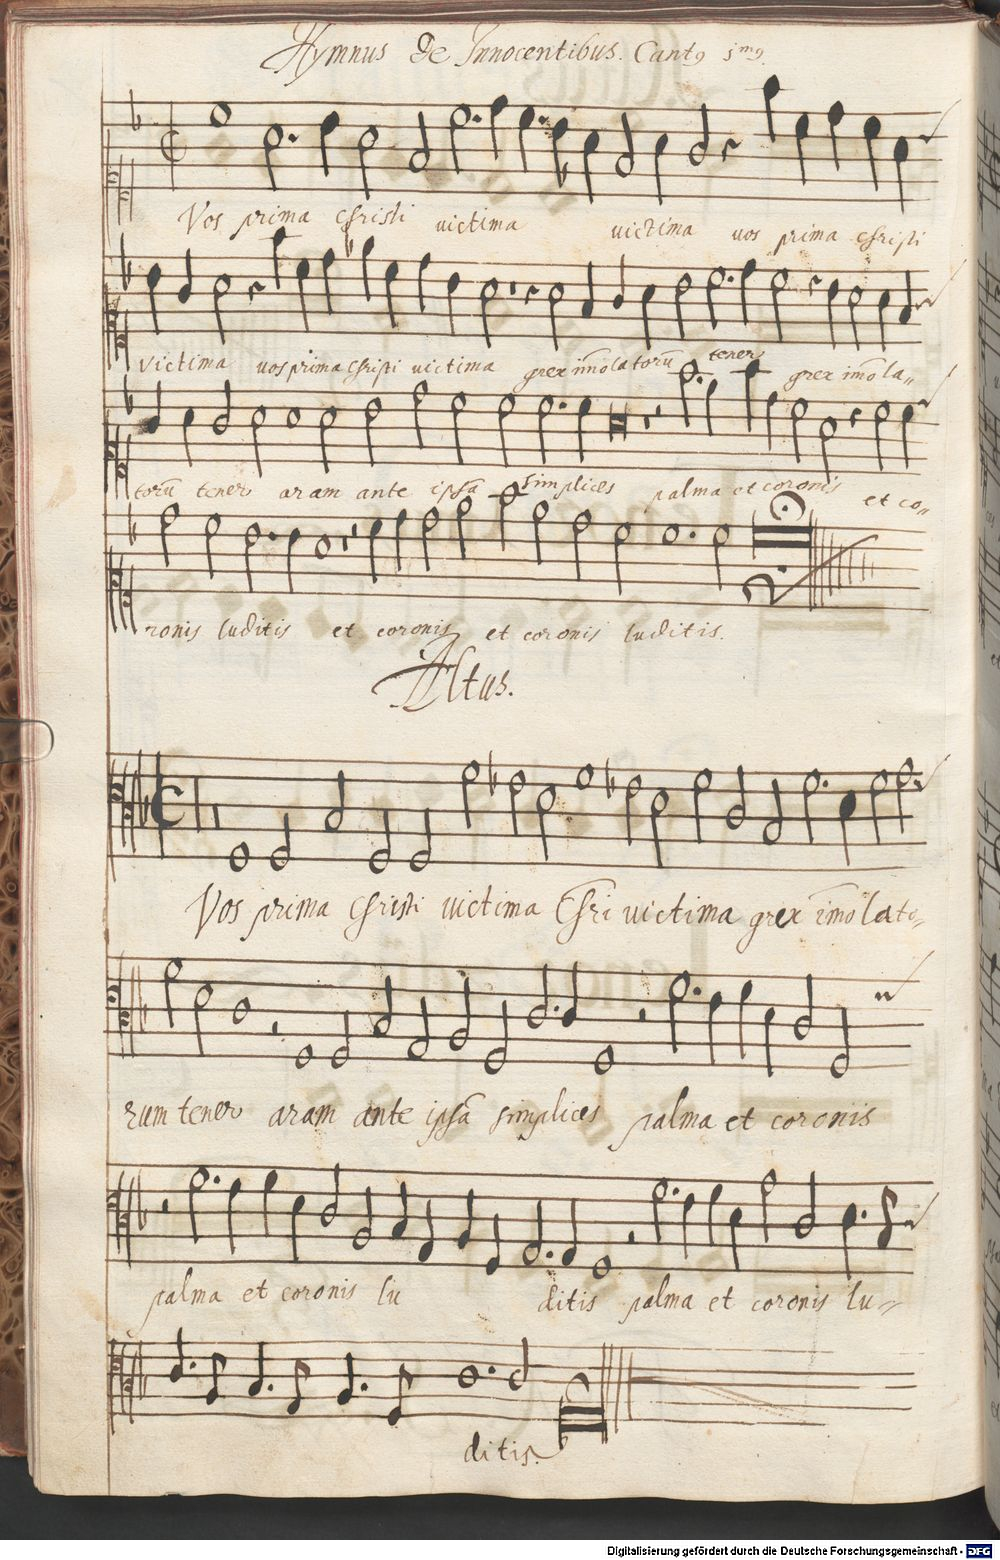 Hymnus De Innocentibus. Cantꝰ 1mꝰ.
Vos prima Christi victima victima vos prima Christi
victima vos prima Christi victima grex im̃olatorũ tener grex im̃ola-
torũ tener aram ante ipsã simplices palma et coronis et co-
ronis luditis et coronis et coronis luditis.
Altus.
Vos prima Christi victima Chr̃i victima grex im̃olato-
rum tener aram ante ipsã simplices palma et coronis
palma et coronis lu ditis palma et coronis lu-
ditis.
Digitalisierung gefördert durch die Deutsche Forschungsgemeinschaft - DFG